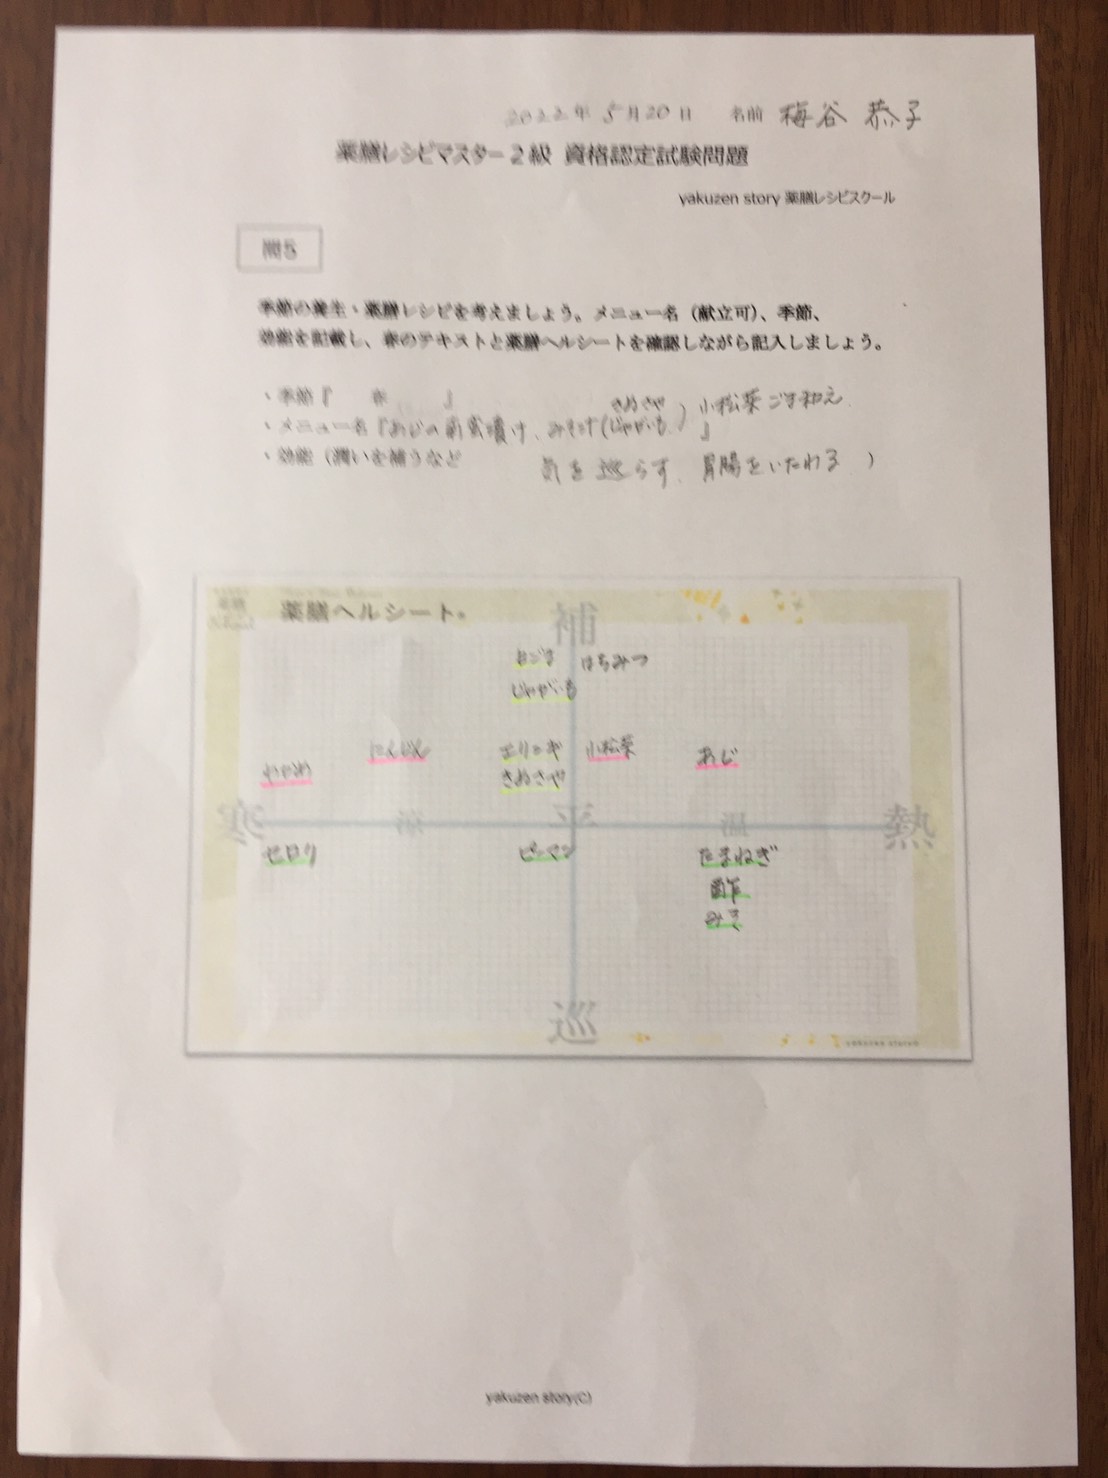 2022年 5月20日 名前 梅谷 恭子
薬膳レシピマスター2級 資格認定試験問題
yakuzen story 薬膳レシピスクール
問5
季節の養生・薬膳レシピを考えましょう。メニュー名（献立可）、季節、
効能を記載し、春のテキストと薬膳ヘルシートを確認しながら記入しましょう。
・季節『 春 』
・メニュー名『あじの南蛮漬け、みそ汁(きぬさや じゃがいも) 小松菜ごま和え 』
・効能（潤いを補うなど 気を巡らす、胃腸をいたわる ）
薬膳ヘルシート®
補
はちみつ
じゃがいも
わかめ にんじん エリンギ 小松菜 あじ
きぬさや
寒 涼 平 温 熱
セロリ ピーマン たまねぎ
酢
みそ
巡
yakuzen story(C)